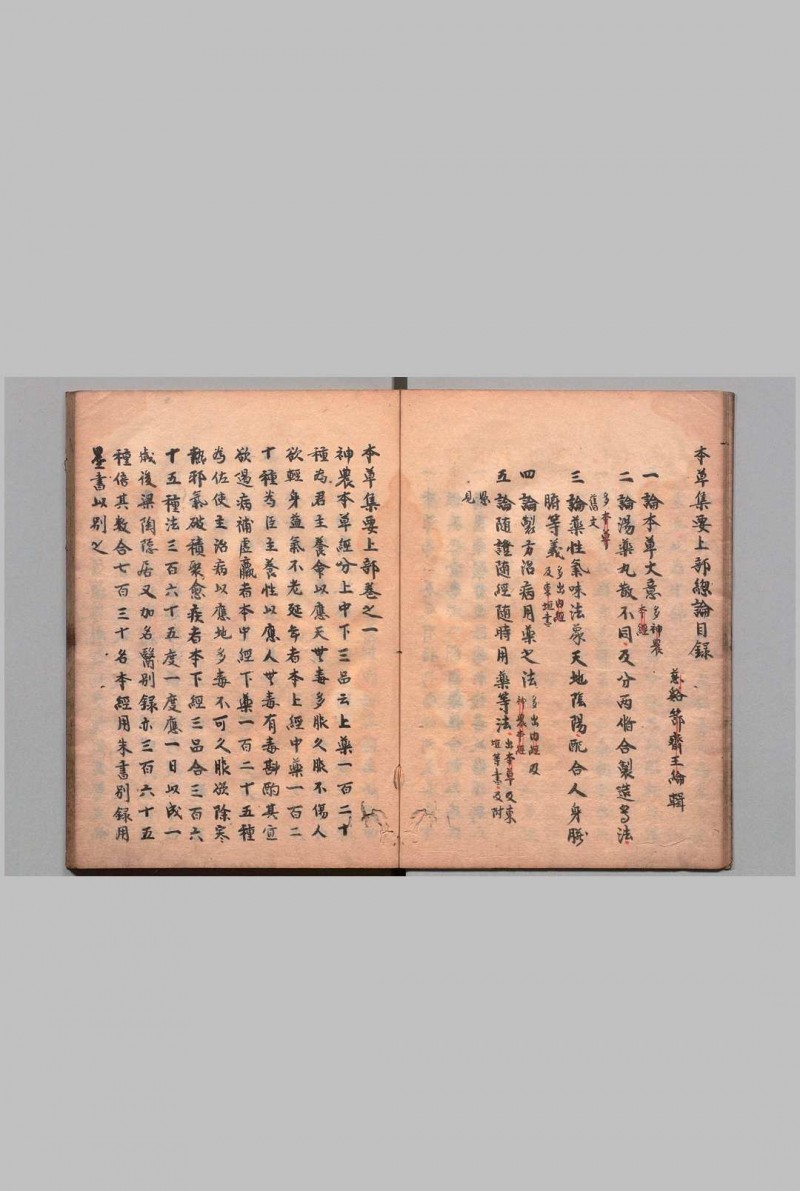 本草集要上部總論目錄
慈谿節齋王綸輯
一論本草大意多神農本經
二論湯藥丸散不同及分両修合製造等法
多本草舊文
三論藥性氣味法象天地陰陽配合人身臟
腑等義多出内經及東垣書
四論製方治病用藥之法多出内經及神農本經
五論随證随經随時用藥等法出本草及東垣等書及附
愚見
本草集要上部卷之一
神農本草經分上中下三品云上藥一百二十
種為君主養命以應天無毒多服久服不傷人
欲輕身益氣不老延年者本上經中藥一百二
十種為臣主養性以應人無毒有毒斟酌其宜
欲遏病補虚羸者本中經下藥一百二十五種
為佐使主治病以應地多毒不可久服欲除寒
熱邪氣破積聚愈疾者本下經三品合三百六
十五種法三百六十五度一度應一日以成一
歳後梁陶隠居又加名醫別録亦三百六十五
種倍其数合七百三十名本經用朱書別録用
墨書以别之